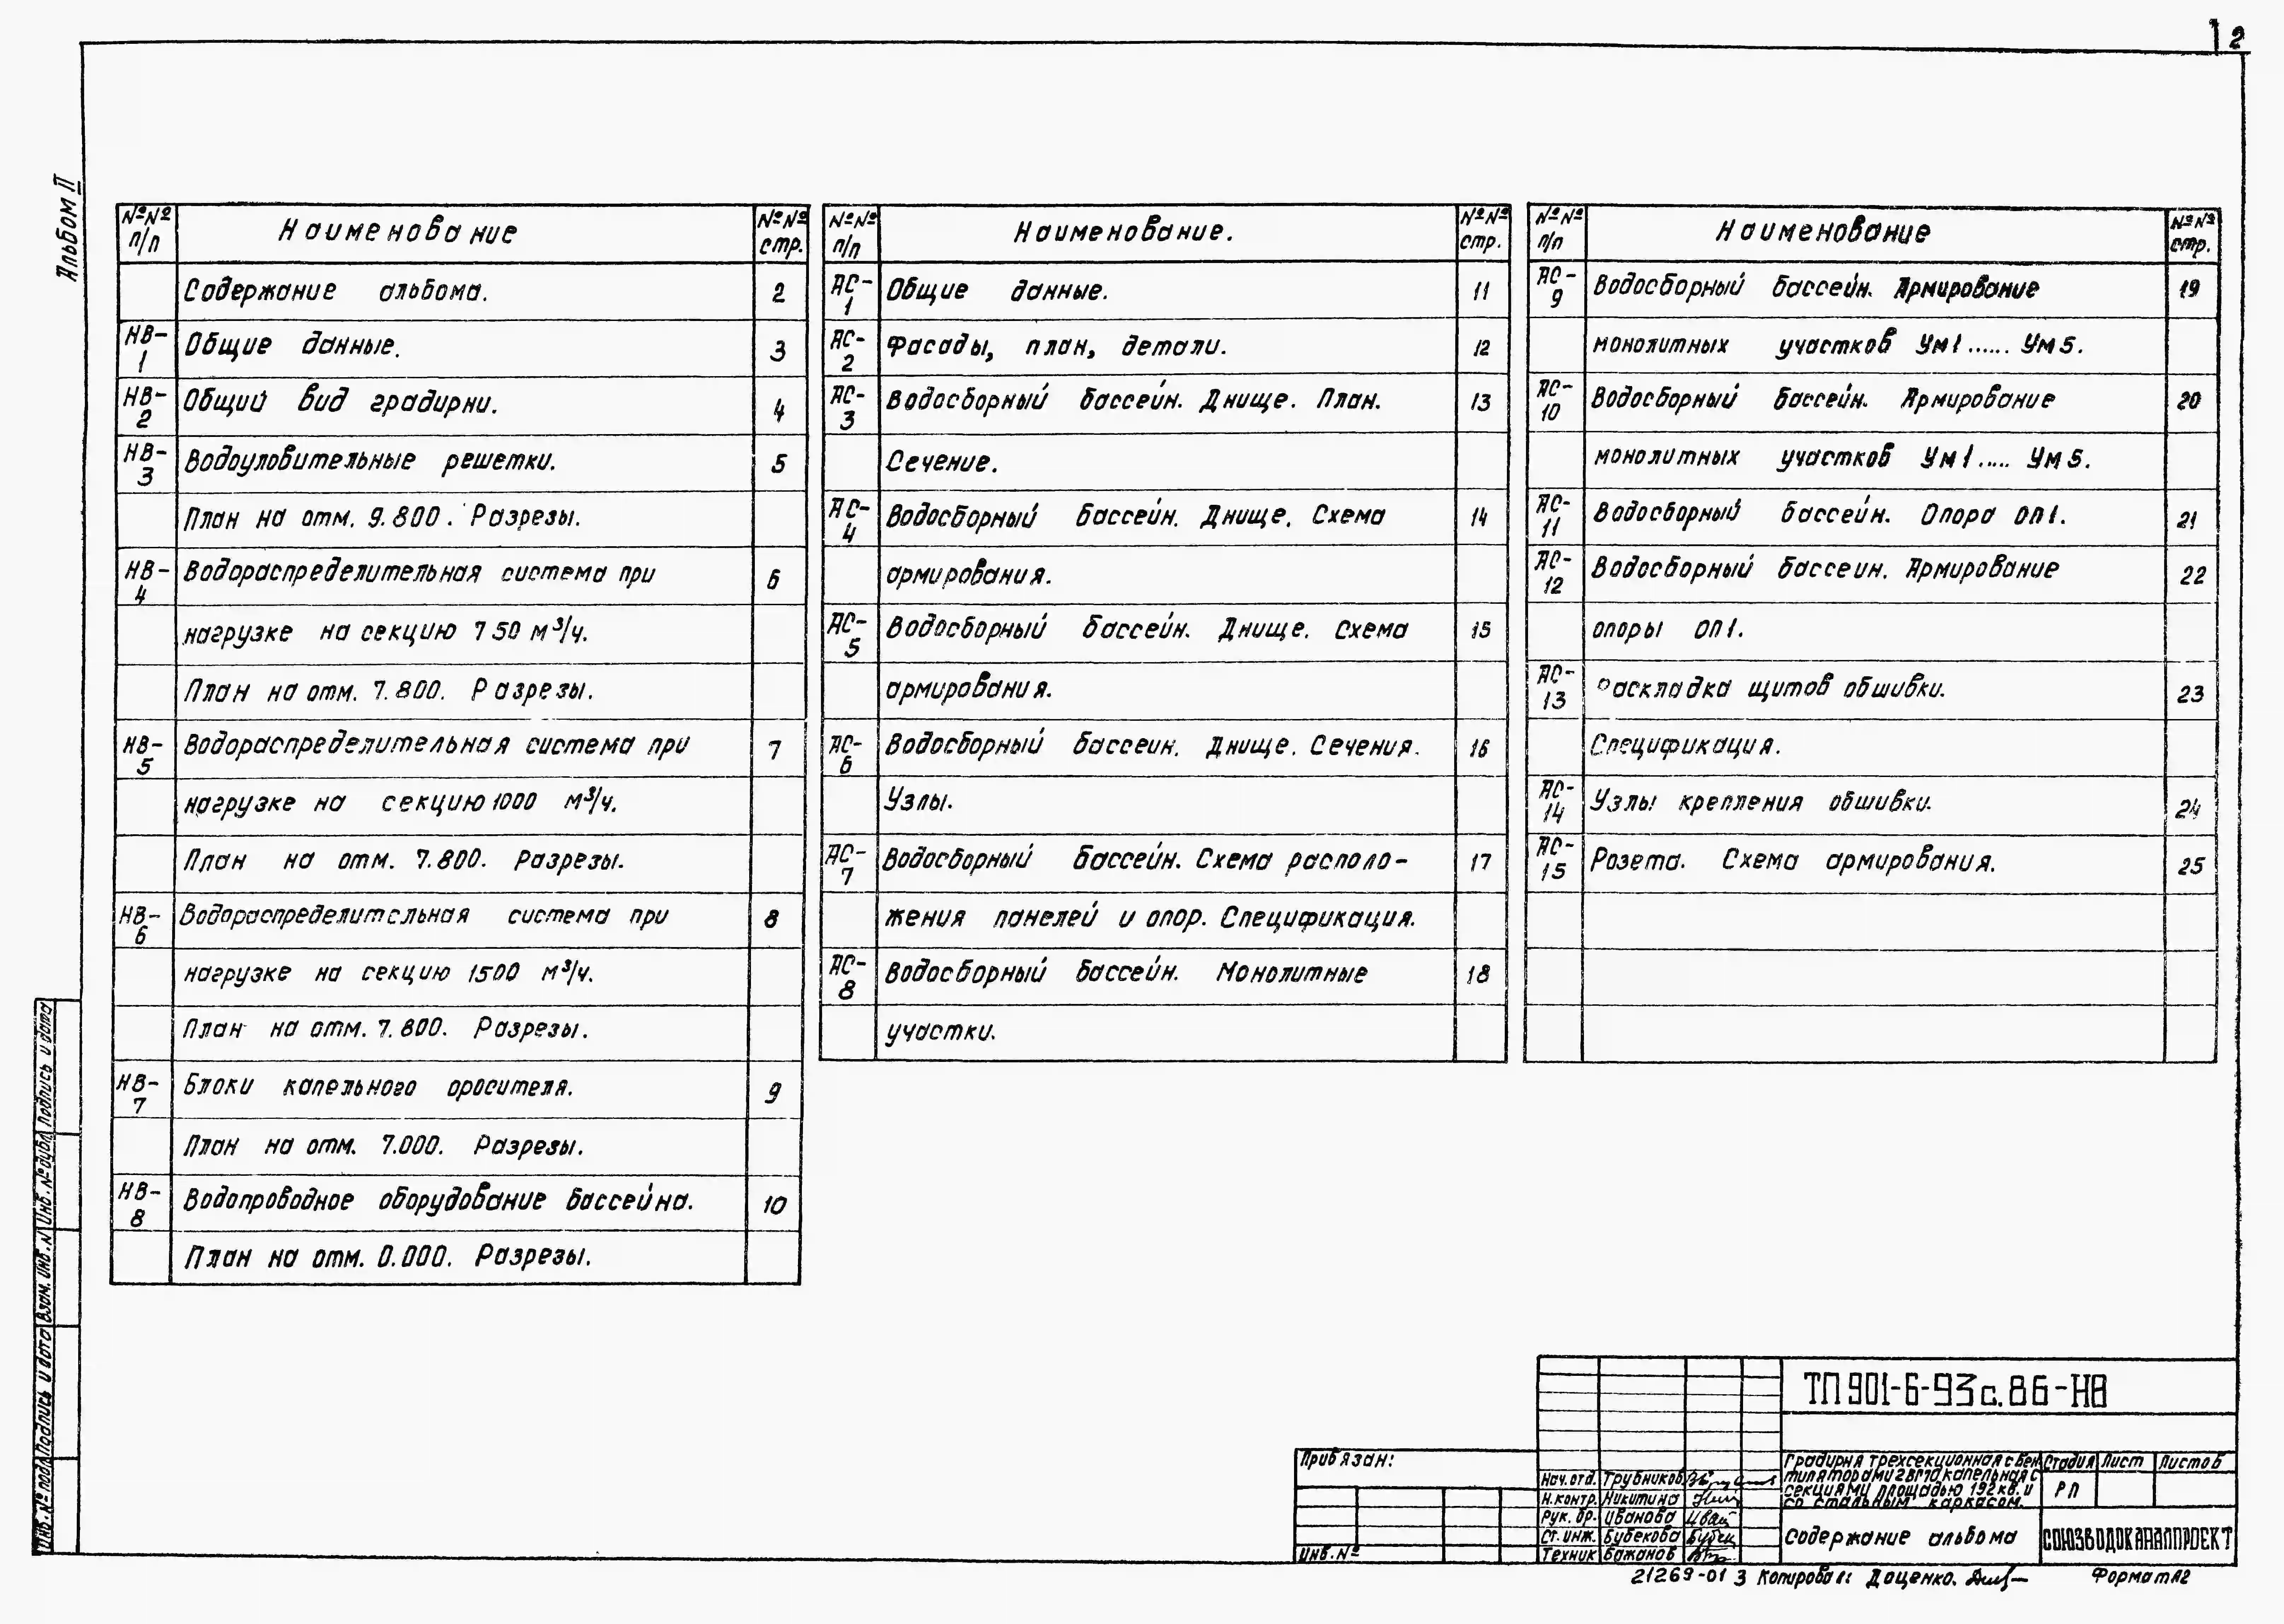 2
Альбом II
№№ п/п Наименование №№ стр.
Содержание альбома. 2
НВ-1 Общие данные. 3
НВ-2 Общий вид градирни. 4
НВ-3 Водоуловительные решетки. 5
План на отм. 9.800. Разрезы.
НВ-4 Водораспределительная система при 6
нагрузке на секцию 750 м³/ч.
План на отм. 7.800. Разрезы.
НВ-5 Водораспределительная система при 7
нагрузке на секцию 1000 м³/ч.
План на отм. 7.800. Разрезы.
НВ-6 Водораспределительная система при 8
нагрузке на секцию 1500 м³/ч.
План на отм. 7.800. Разрезы.
НВ-7 Блоки капельного оросителя. 9
План на отм. 7.000. Разрезы.
НВ-8 Водопроводное оборудование бассейна. 10
План на отм. 0.000. Разрезы.
№№ п/п Наименование. №№ стр.
АС-1 Общие данные. 11
АС-2 Фасады, план, детали. 12
АС-3 Водосборный бассейн. Днище. План. 13
Сечение.
АС-4 Водосборный бассейн. Днище. Схема 14
армирования.
АС-5 Водосборный бассейн. Днище. Схема 15
армирования.
АС-6 Водосборный бассеин. Днище. Сечения. 16
Узлы.
АС-7 Водосборный бассейн. Схема располо- 17
жения панелей и опор. Спецификация.
АС-8 Водосборный бассейн. Монолитные 18
участки.
№№ п/п Наименование №№ стр.
АС-9 Водосборный бассейн. Армирование 19
монолитных участков Ум1...... Ум5.
АС-10 Водосборный бассейн. Армирование 20
монолитных участков Ум1..... Ум5.
АС-11 Водосборный бассейн. Опора ОП1. 21
АС-12 Водосборный бассеин. Армирование 22
опоры ОП1.
АС-13 Раскладка щитов обшивки. 23
Спецификация.
АС-14 Узлы крепления обшивки. 24
АС-15 Розета. Схема армирования. 25
Инв. № подл. Подпись и дата Взам. инв. № Инв. № дубл. Подпись и дата
ТП 901-6-93с.86-НВ
Привязан:
Инв. №
Нач. отд. Трубников
Н. контр. Никитина
Рук. бр. Иванова
Ст. инж. Бубекова
Техник Бажанов
Градирня трехсекционная с вен
тиляторами 2ВГ70 капельная с
секциями площадью 192 кв. и
со стальным каркасом.
Стадия Лист Листов
РП
Содержание альбома
СОЮЗВОДОКАНАЛПРОЕКТ
21269-01 3 Копировал: Даценко. Формат А2